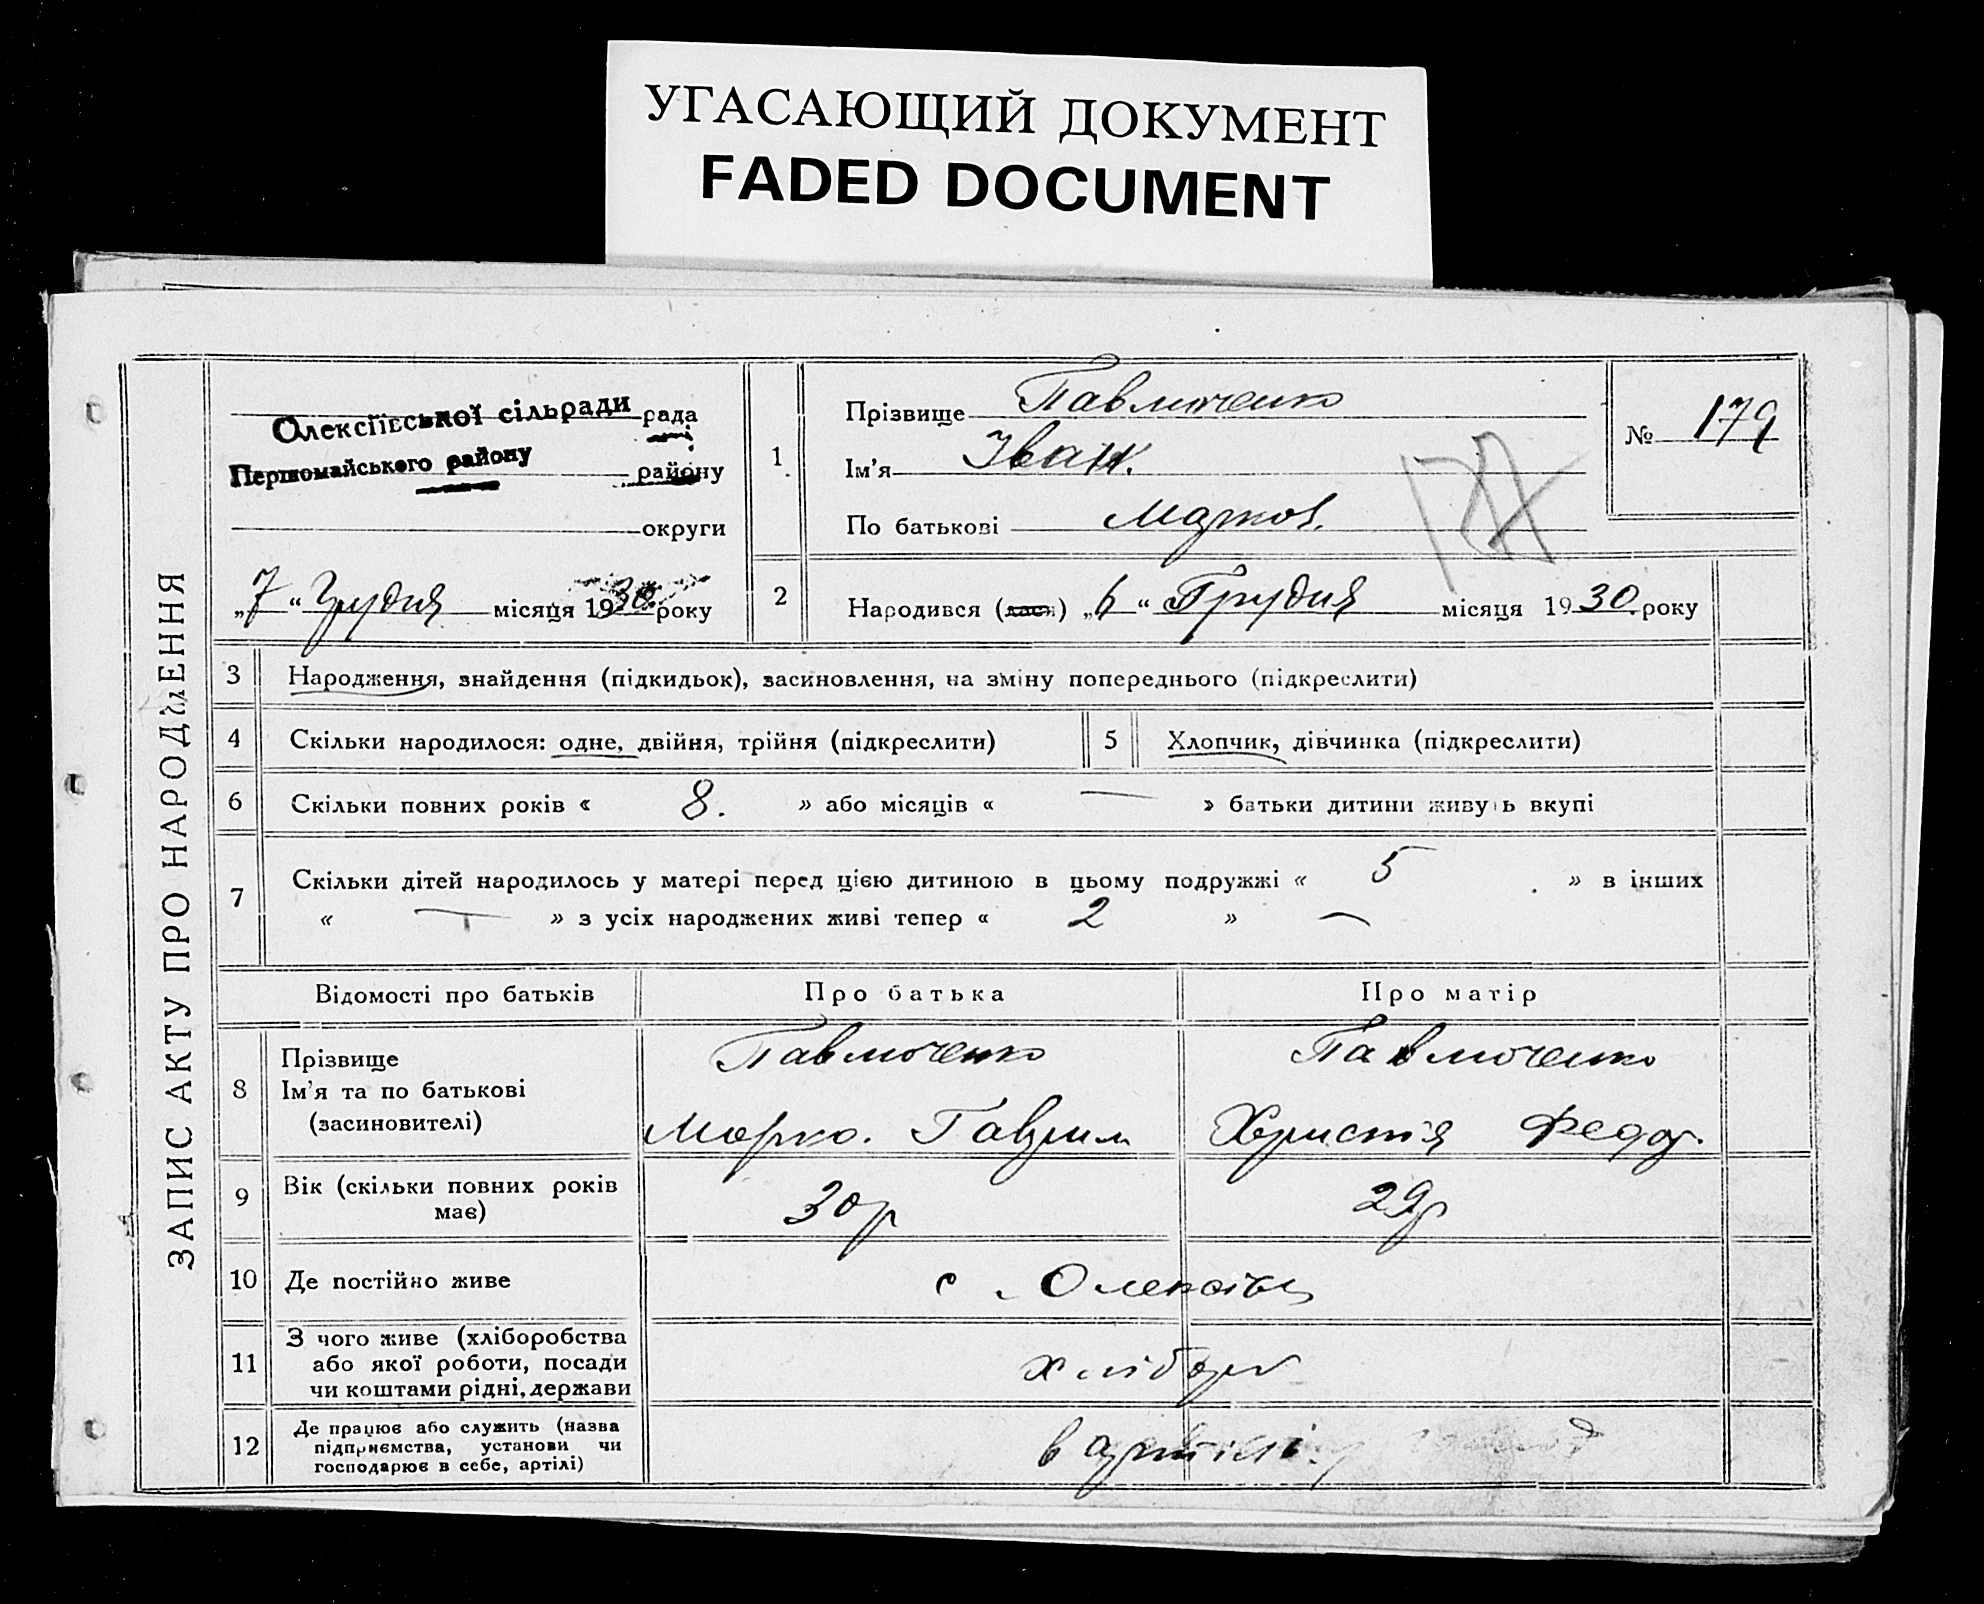 УГАСАЮЩИЙ ДОКУМЕНТ
FADED DOCUMENT
ЗАПИС АКТУ ПРО НАРОДЖЕННЯ
Олексіївської сільради рада
Першомайського району району
округи
„7“ Грудня місяця 1930 року
1
Прізвище Павлюченко
Ім'я Іван.
По батькові Марков.
№ 179
2
Народився (лась) „6“ Грудня місяця 1930 року
3 Народження, знайдення (підкидьок), засиновлення, на зміну попереднього (підкреслити)
4 Скільки народилося: одне, двійня, трійня (підкреслити)
5 Хлопчик, дівчинка (підкреслити)
6 Скільки повних років « 8. » або місяців « — » батьки дитини живуть вкупі
7 Скільки дітей народилось у матері перед цією дитиною в цьому подружжі « 5 » в інших
« — » з усіх народжених живі тепер « 2 » —
Відомості про батьків Про батька Про матір
8 Прізвище Павлюченко Павлюченко
Ім'я та по батькові
(засиновителі) Марко. Гаврил Христя Федор.
9 Вік (скільки повних років
має) 30р 29р
10 Де постійно живе с. Олексіівці
11 З чого живе (хліборобства
або якої роботи, посади
чи коштами рідні, держави
хлібороб
12 Де працює або служить (назва
підприємства, установи чи
господарює в себе, артілі)
в артілі.